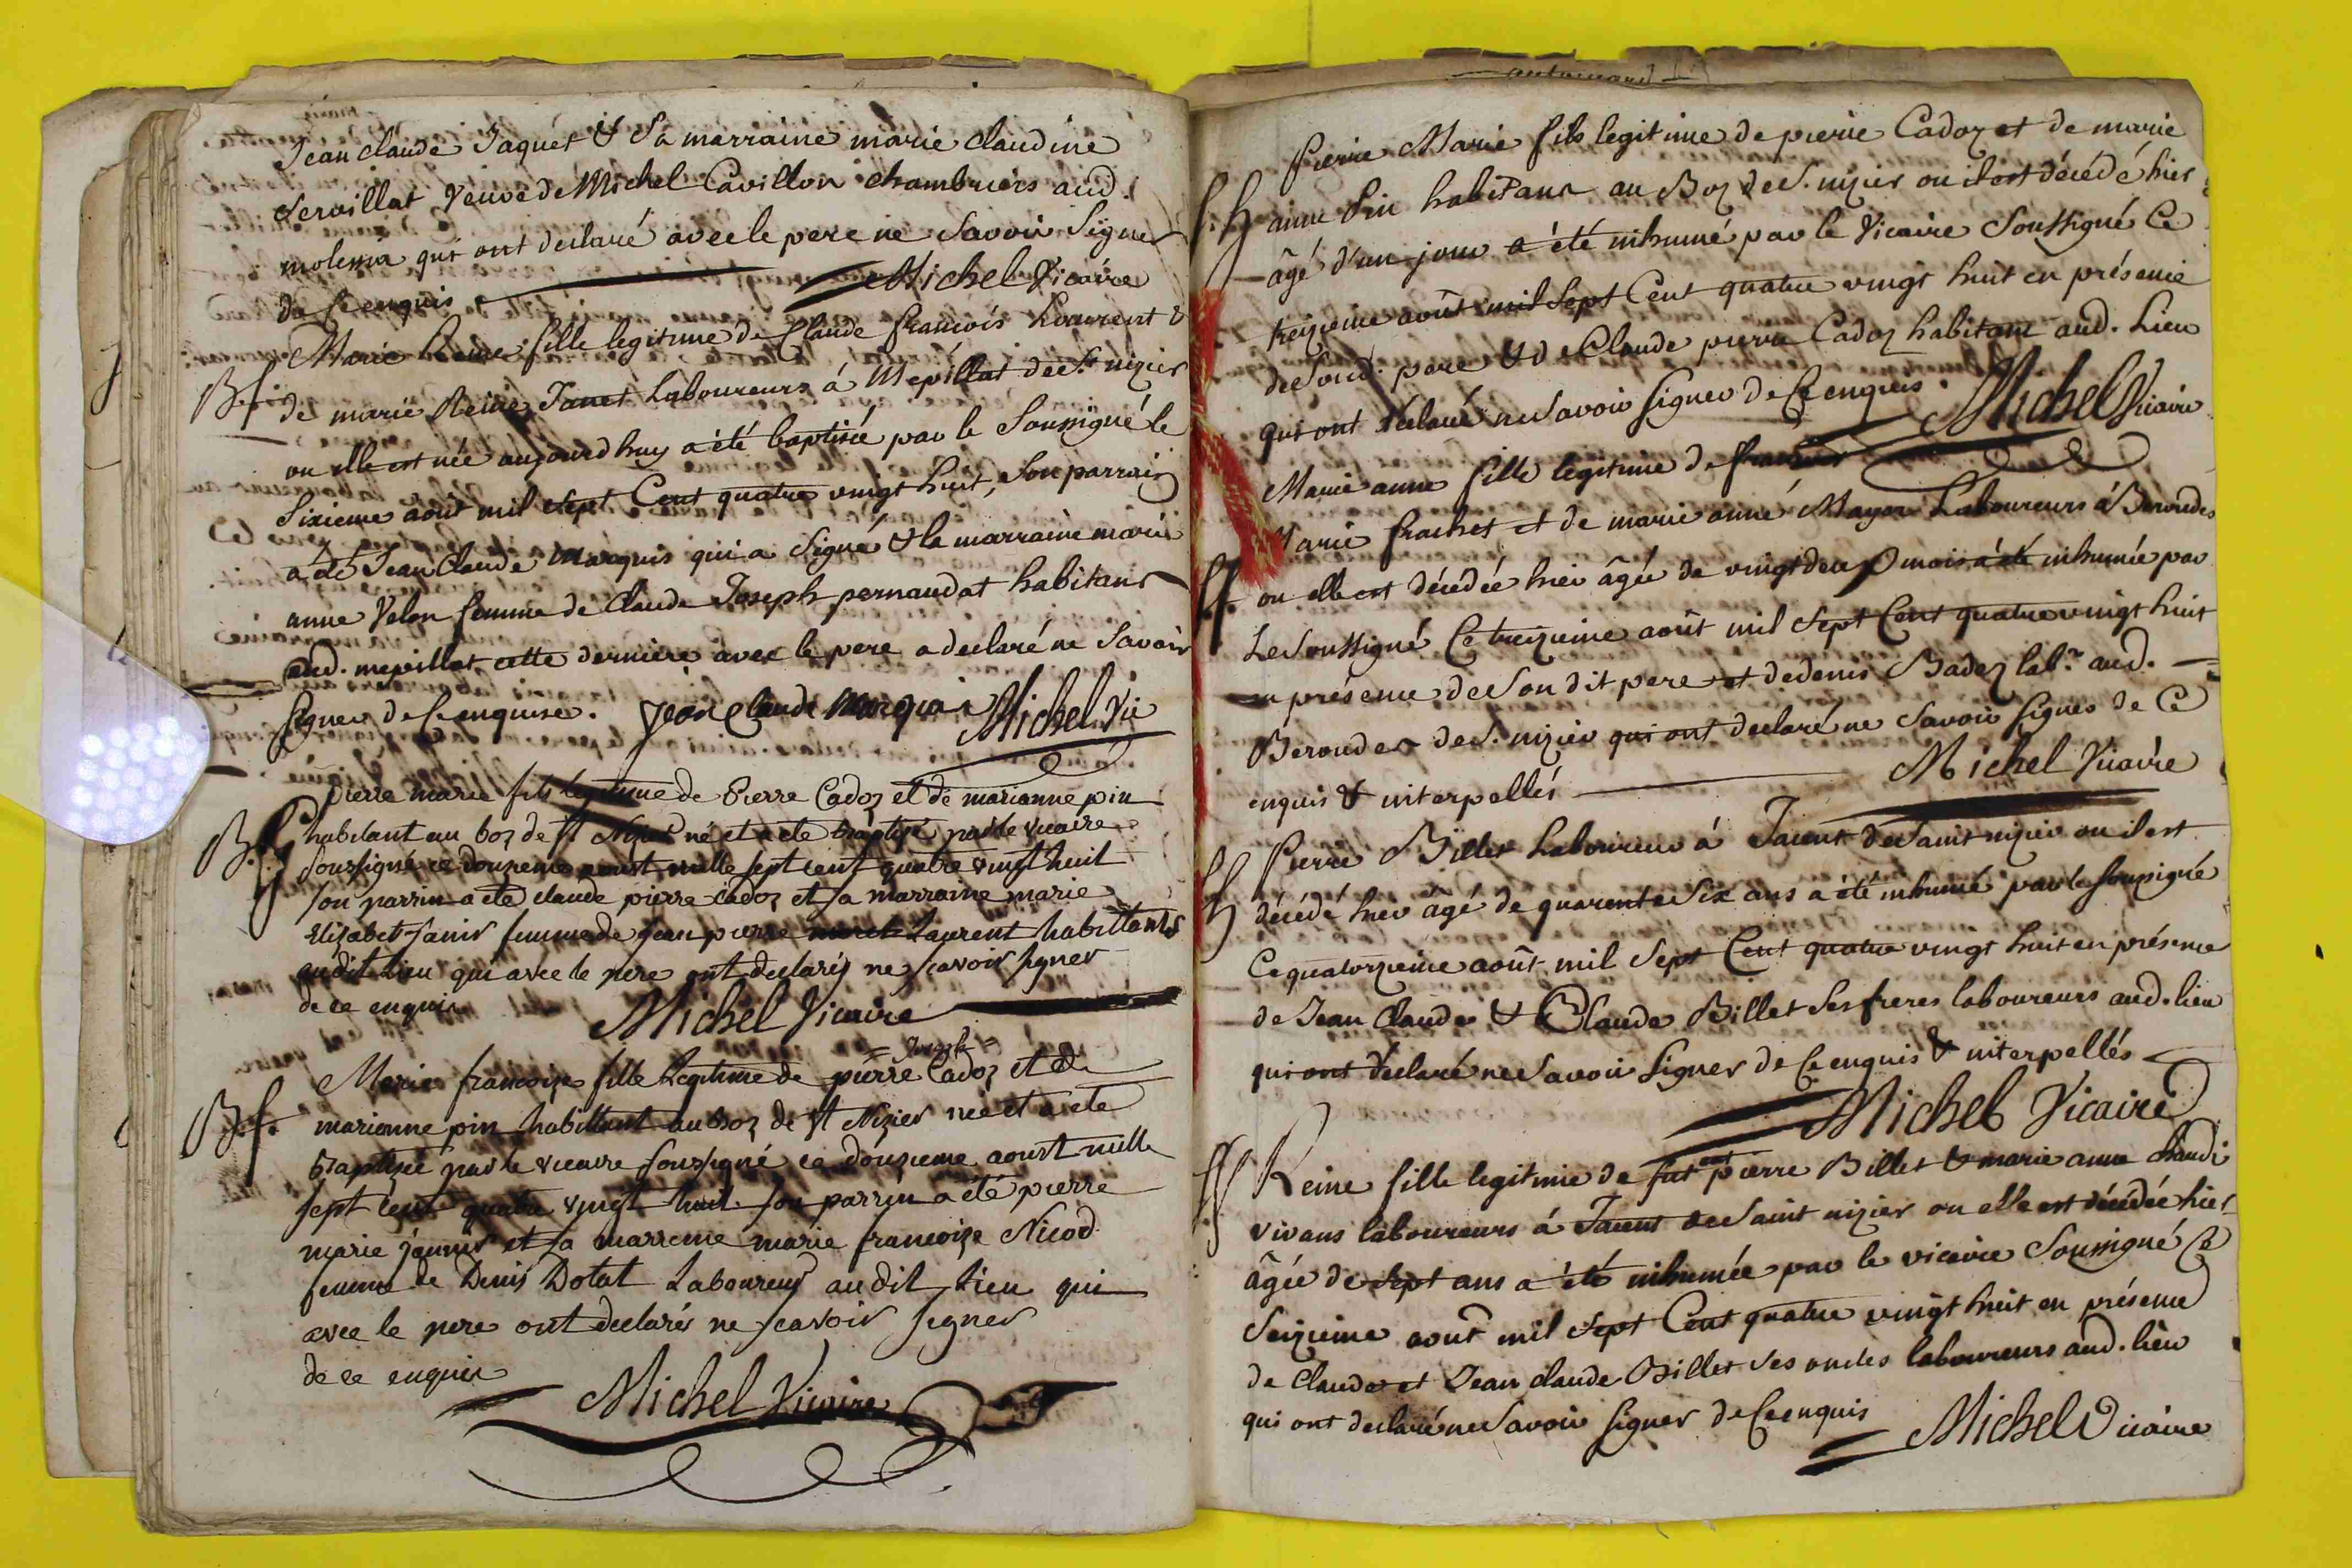 Jean claude Jaquet & Sa marraine marie claudine
Servillat Veuve de Michel Cavillon chambriers aud.
molessia qui ont declaré avec le pere ne Savoir Signer
de Ce enquis Michel Vicaire
Marie Reine fille legitime de Claude francois Laurent &
B. f. de marie Reine Janet Laboureurs à Mepillat de St nizier
ou elle est née aujourdhuy a été baptisée par le Soussigné le
Sixieme août mil Sept Cent quatre vingt huit, Son parrain
a été Jean Claude Marquis qui a Signé & la marraine marie
anne Velon femme de Claude Joseph pernaudat habitans
aud. mepillat cette derniere avec le pere a declaré ne Savoir
Signer de Ce enquise. Jean Claude Marquis Michel Vic
pierre marie fils legitime de Pierre Cadoz et de marianne pin
B. G habitant au boz de St Nizier né et a ete baptisé par le vicaire
soussigné ce douzieme aoust mille sept cent quatre vingt huit
son parrin a ete claude pierre cadoz et sa marraine marie
Elizabet Janin femme de Jean pierre Laurent habittants
audit lieu qui avec le pere ont declarés ne scavoir signer
de ce enquis Michel Vicaire
= Joseph =
Marie francoise fille Legitime de pierre Cadoz et de
B. f. marianne pin habittant au Boz de St Nizier née et a ete
Baptizée par le vicaire soussigné ce douzieme aoust mille
sept cent quatre vingt huit son parrin a été pierre
marie janin et sa marrene marie francoize Nicod
femme de Denis Dotat Laboureur audit Lieu qui
avec le pere ont declarés ne scavoir signer
de ce enquis
Michel Vicaire
Pierre Marie fils legitime de pierre Cadoz et de marie
anne Pin habitans au Boz de S. nizier ou il est décédé hier
âgé d'un jour a été inhumé par le Vicaire Soussigné Ce
treizieme août mil Sept Cent quatre vingt huit en présence
de Sond. pere & de Claude pierre Cadoz habitant aud. Lieu
qui ont déclaré ne Savoir Signer de Ce enquis. Michel Vicaire
Marie anne fille legitime de
Marie frachet et de marie anne Mayor Laboureurs à Beroudes
ou elle est décédée hier âgée de vingt deux mois a été inhumée par
Le Soussigné Ce treizieme août mil Sept Cent quatre vingt huit
en présence de Son dit pere et de denis Badoz labr. aud.
Beroudes de S. nizier qui ont declaré ne Savoir Signer de Ce
enquis & interpellés Michel Vicaire
Pierre Billet Laboureur à Jaunt de Saint nizier ou il est
décédé hier âgé de quarente Six ans a été inhumé par le Soussigné
Ce quatorzieme août mil Sept Cent quatre vingt huit en présence
de Jean Claude & Claude Billet Ses freres laboureurs aud. lieu
qui ont déclaré ne Savoir Signer de Ce enquis & interpellés
Michel Vicaire
Reine fille legitimie de pierre Billet & marie anne
vivans laboureurs à Jaunt de Saint nizier ou elle est décédée hier
âgée de Sept ans a été inhumée par le vicaire Soussigné Ce
Seizieme août mil Sept Cent quatre vingt huit en présence
de Claude et Jean claude Billet Ses oncles laboureurs aud. lieu
qui ont declaré ne Savoir Signer de Ce enquis Michel Vicaire